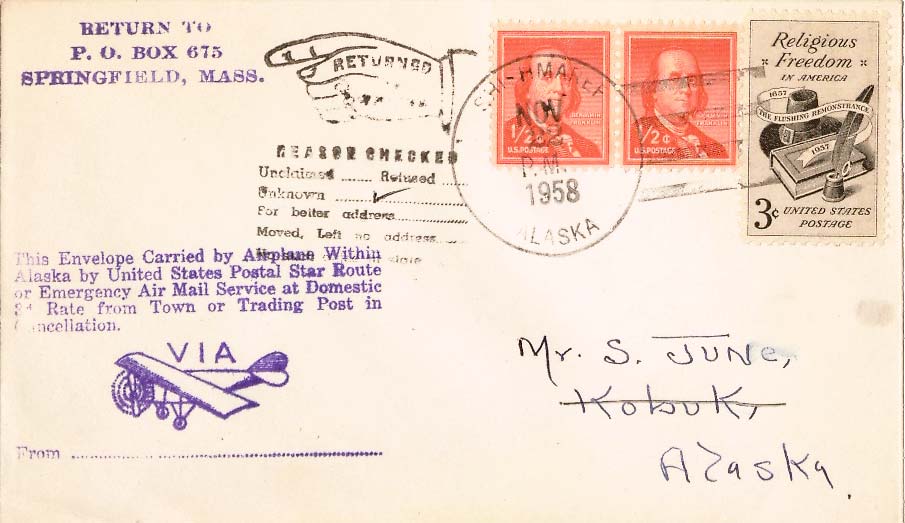 RETURN TO
P. O. BOX 675
SPRINGFIELD, MASS.
RETURNED
REASON CHECKED
Unclaimed ........ Refused
Unknown
For better address
Moved, Left no address
This Envelope Carried by Airplane Within
Alaska by United States Postal Star Route
or Emergency Air Mail Service at Domestic
Rate from Town or Trading Post in
Cancellation.
VIA
From
SHISHMAREF
NOV
P.M.
1958
ALASKA
1/2¢
BENJAMIN
FRANKLIN
U.S. POSTAGE
1/2¢
BENJAMIN
FRANKLIN
U.S. POSTAGE
Religious
Freedom
IN AMERICA
1657
THE FLUSHING REMONSTRANCE
1957
3¢ UNITED STATES
POSTAGE
Mr. S. JUNE,
Kobuk,
Alaska.